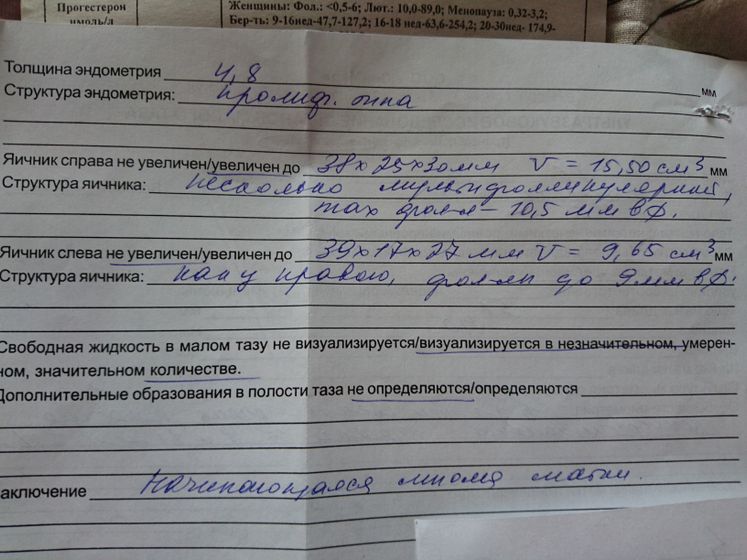 Прогестерон
нмоль/л
Женщины: Фол.: <0,5-6; Лют.: 10,0-89,0; Менопауза: 0,32-3,2;
Бер-ть: 9-16нед-47,7-127,2; 16-18 нед-63,6-254,2; 20-30нед- 174,9-
Толщина эндометрия 4,8 мм
Структура эндометрия: пролиф. типа
Яичник справа не увеличен/увеличен до 38х25х30мм V = 15,50 см³ мм
Структура яичника: несколько мультифолликулярный,
max фолл – 10,5 мм в ф.
Яичник слева не увеличен/увеличен до 39х17х27 мм V = 9,65 см³ мм
Структура яичника: как у правого, фол-лы до 9мм в ф.
Свободная жидкость в малом тазу не визуализируется/визуализируется в незначительном, умерен-
ном, значительном количестве.
Дополнительные образования в полости таза не определяются/определяются
аключение Начинающаяся миома матки.